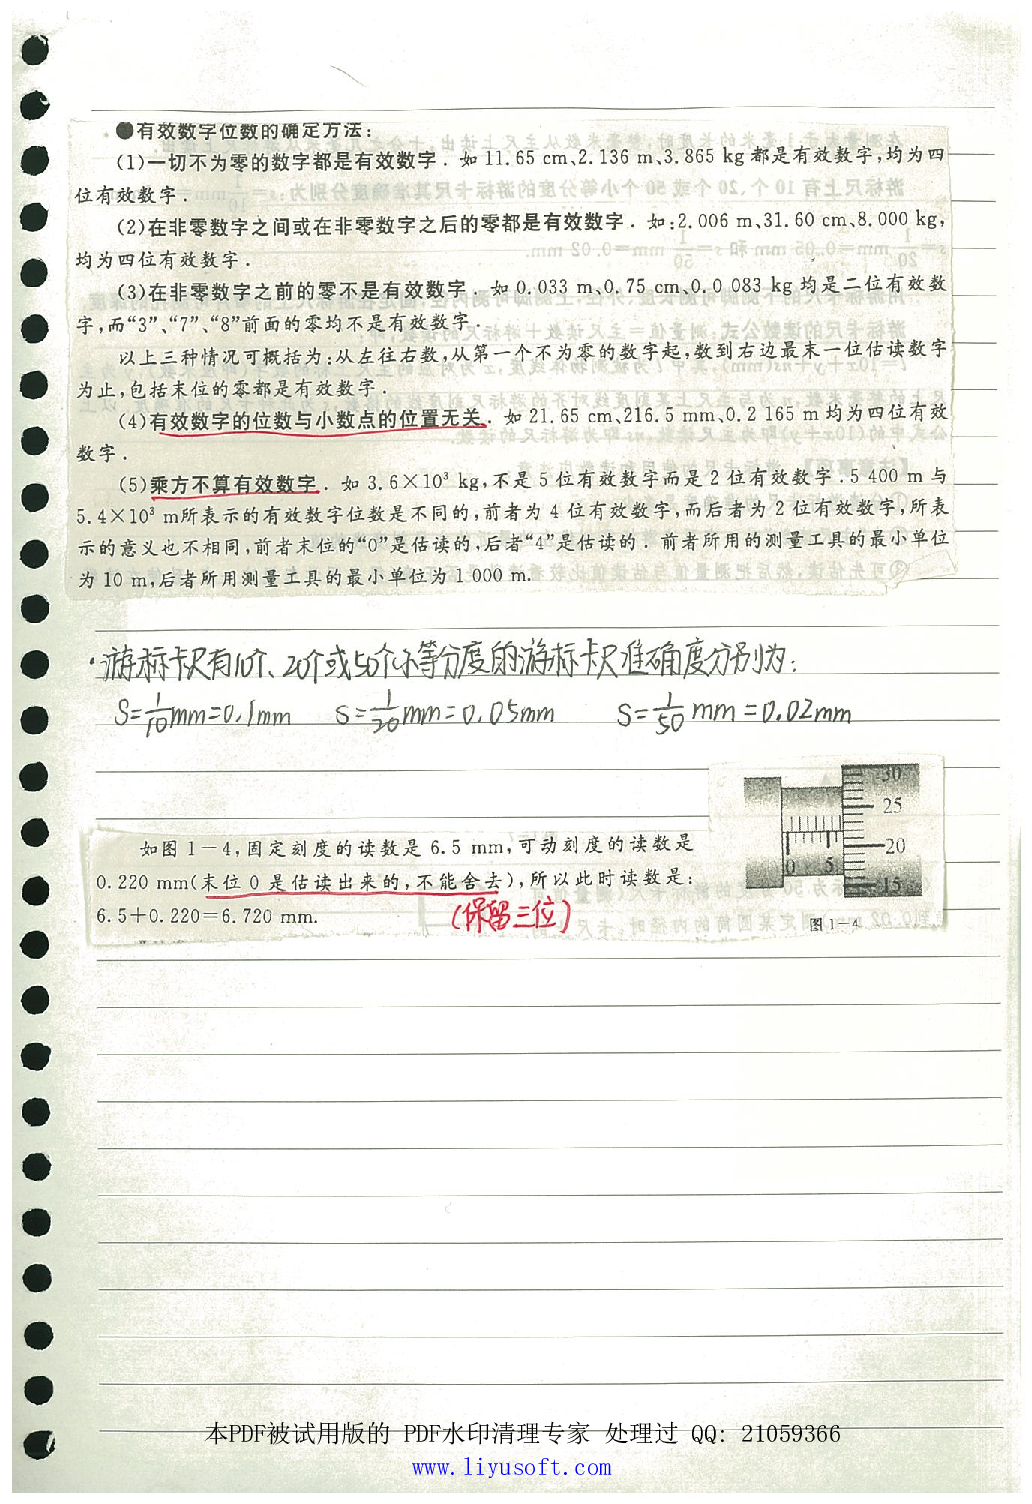 ●有效数字位数的确定方法:
(1)一切不为零的数字都是有效数字. 如 11.65 cm、2.136 m、3.865 kg 都是有效数字,均为四
位有效数字.
(2)在非零数字之间或在非零数字之后的零都是有效数字. 如:2.006 m、31.60 cm、8.000 kg,
均为四位有效数字.
(3)在非零数字之前的零不是有效数字. 如 0.033 m、0.75 cm、0.0 083 kg 均是二位有效数
字,而“3”、“7”、“8”前面的零均不是有效数字.
以上三种情况可概括为:从左往右数,从第一个不为零的数字起,数到右边最末一位估读数字
为止,包括末位的零都是有效数字.
(4)有效数字的位数与小数点的位置无关. 如 21.65 cm、216.5 mm、0.2 165 m 均为四位有效
数字.
(5)乘方不算有效数字. 如 3.6×10³ kg,不是 5 位有效数字而是 2 位有效数字. 5 400 m 与
5.4×10³ m所表示的有效数字位数是不同的,前者为 4 位有效数字,而后者为 2 位有效数字,所表
示的意义也不相同,前者末位的“0”是估读的,后者“4”是估读的. 前者所用的测量工具的最小单位
为 10 m,后者所用测量工具的最小单位为 1 000 m.
·游标卡尺有10个、20个或50个小等分度的游标卡尺准确度分别为:
S=1/10mm=0.1mm S=1/20mm=0.05mm S=1/50mm=0.02mm
30
25
20
15
0 5
如图 1-4,固定刻度的读数是 6.5 mm,可动刻度的读数是
0.220 mm(末位 0 是估读出来的,不能舍去),所以此时读数是:
6.5+0.220=6.720 mm.
(保留三位)
图 1-4
本PDF被试用版的 PDF水印清理专家 处理过 QQ: 21059366
www.liyusoft.com